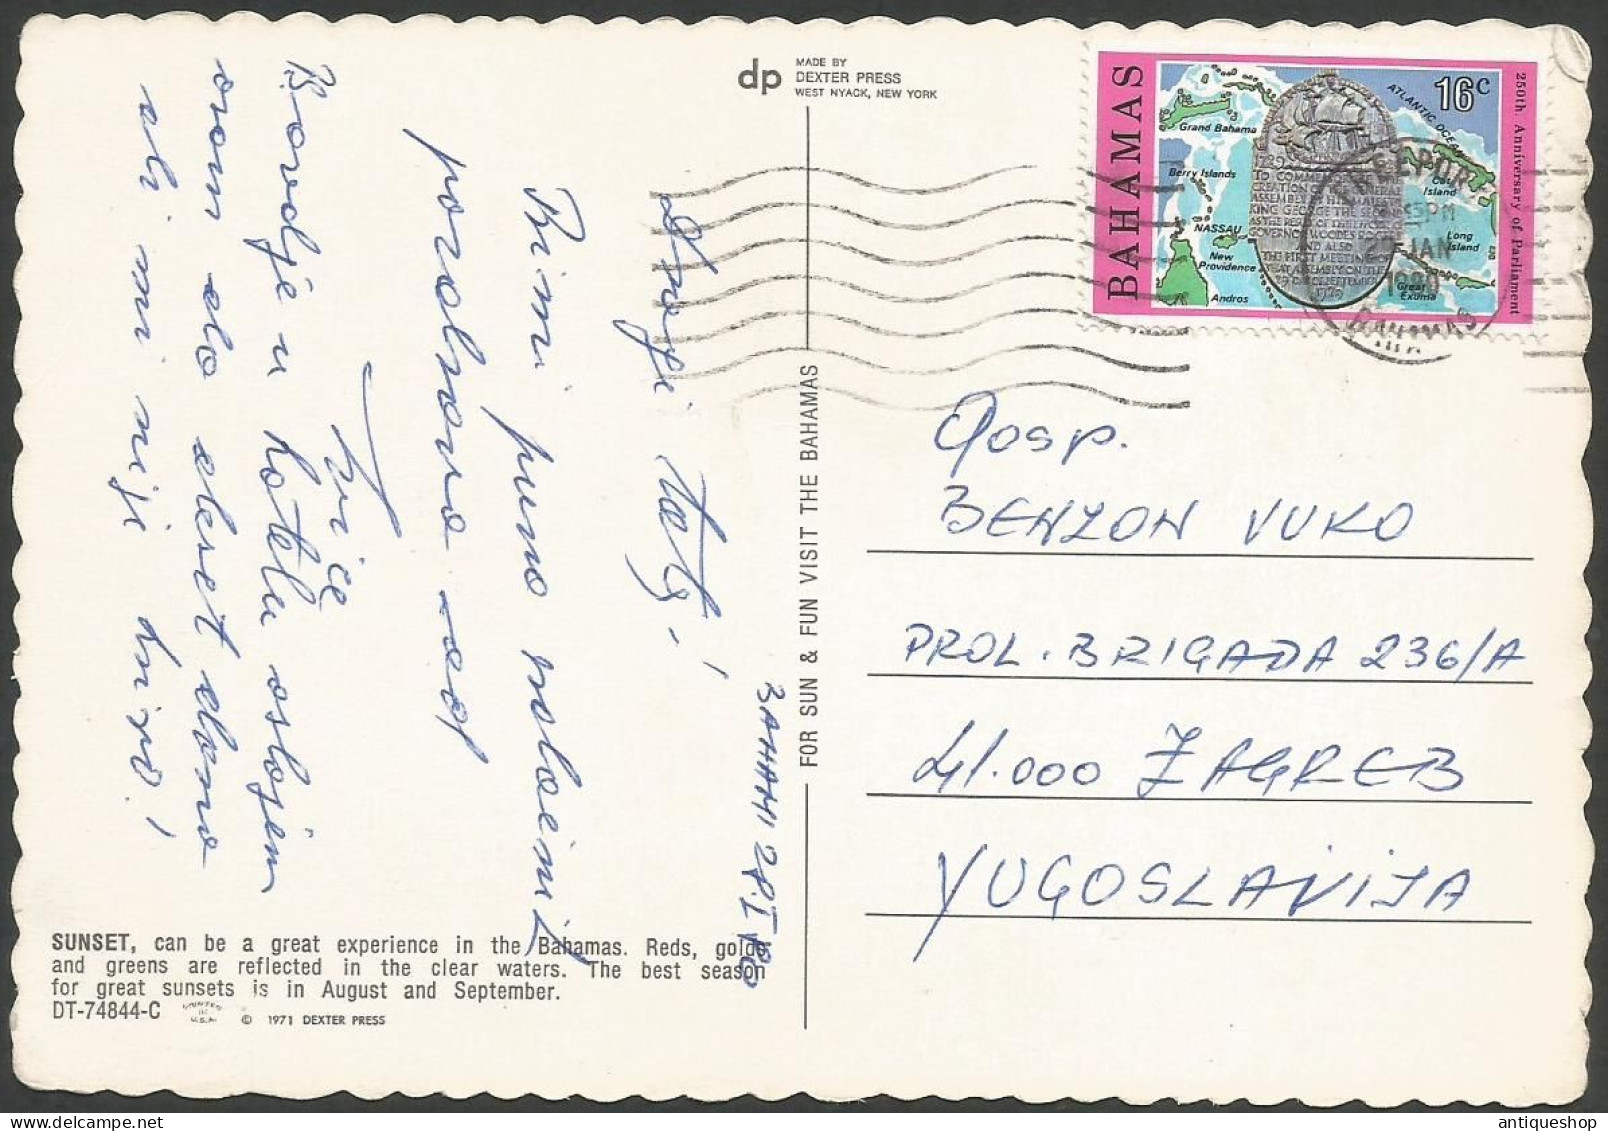 dp
MADE BY
DEXTER PRESS
WEST NYACK, NEW YORK
BAHAMAS
16c
250th. Anniversary of Parliament
ATLANTIC OCEAN
Grand Bahama
Berry Islands
NASSAU
New
Providence
Andros
Cat
Island
Long
Island
Great
Exuma
FREEPORT
PM
JAN
1980
BAHAMAS
BAHAMI 28.I 80
Dragi tata!
Primi puno
pozdrava od
Ivice
Borovdje u hotelu
ovom
ali mi nije krivo!
FOR SUN & FUN VISIT THE BAHAMAS
Gosp.
BENZON VUKO
PROL. BRIGADA 236/A
41.000 ZAGREB
YUGOSLAVIJA
SUNSET, can be a great experience in the Bahamas. Reds, golds
and greens are reflected in the clear waters. The best season
for great sunsets is in August and September.
DT-74844-C
© 1971 DEXTER PRESS
antiqueshop